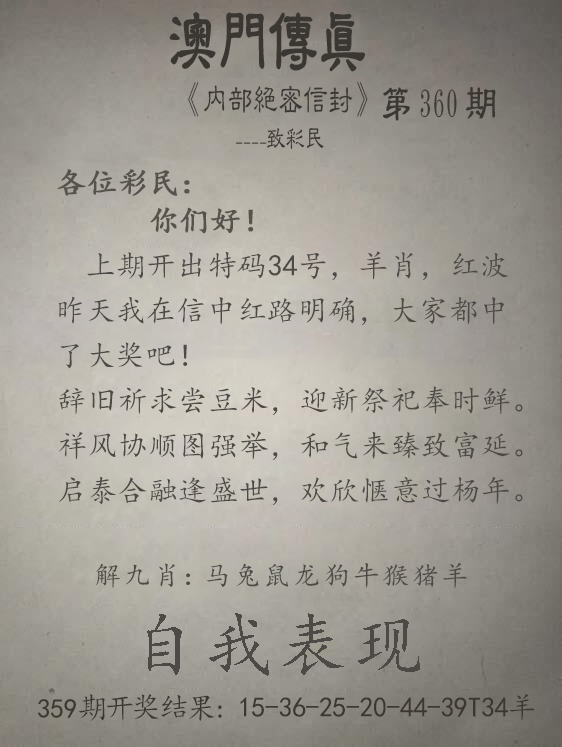 澳門傳眞
《内部絕密信封》第360期
----致彩民
各位彩民：
你们好！
上期开出特码34号，羊肖，红波
昨天我在信中红路明确，大家都中
了大奖吧！
辞旧祈求尝豆米，迎新祭祀奉时鲜。
祥风协顺图强举，和气来臻致富延。
启泰合融逢盛世，欢欣惬意过杨年。
解九肖：马兔鼠龙狗牛猴猪羊
自我表现
359期开奖结果：15-36-25-20-44-39T34羊